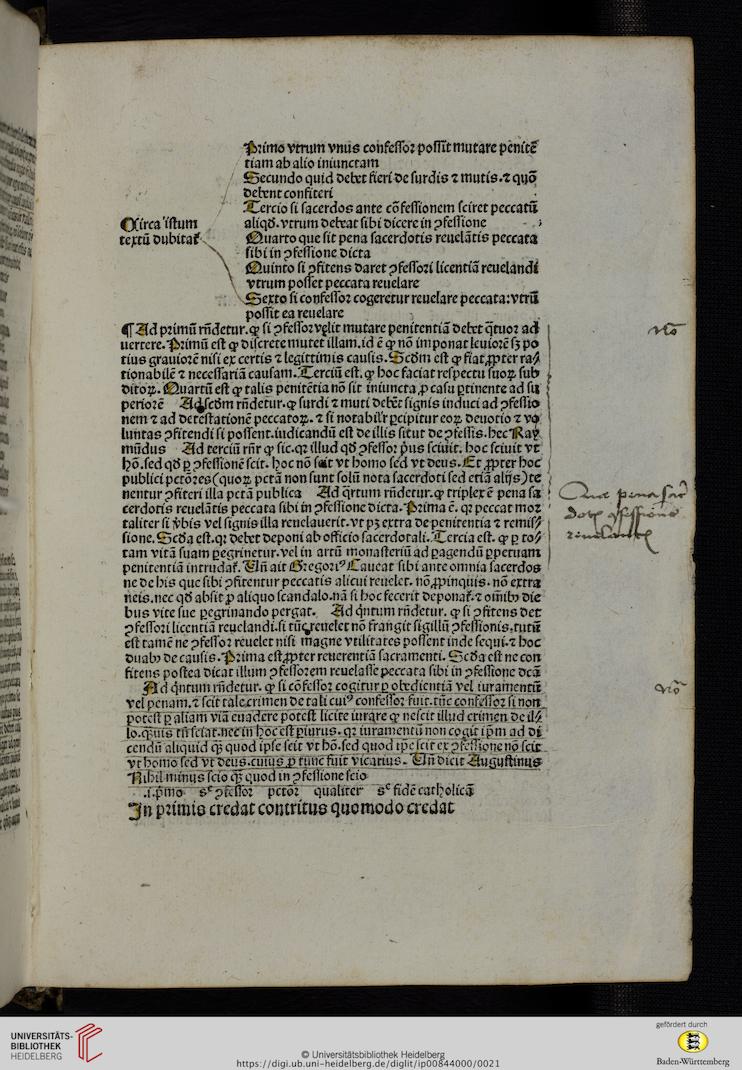 Primo vtrum vnus confessor possit mutare penitē
tiam ab alio iniunctam
Secundo quid debet fieri de surdis ⁊ mutis. ⁊ quō
debent confiteri
Tercio si sacerdos ante cōfessionem sciret peccatū
aliqđ. vtrum debeat sibi dicere in ꝯfessione
Circa istum
textū dubitaꞇ̃
Quarto que sit pena sacerdotis reuelātis peccata
sibi in ꝯfessione dicta
Quinto si ꝯfitens daret ꝯfessori licentiā reuelandi
vtrum posset peccata reuelare
Sexto si confessor cogeretur reuelare peccata: vtrū
possit ea reuelare
¶ Ad primū rñdetur. ꝙ si ꝯfessor velit mutare penitentiā debet q̃tuor ad
vertere. Primū est ꝙ discrete mutet illam. id ē ꝙ nō imponat leuiorē sꝫ po
tius grauiorē nisi ex certis ⁊ legittimis causis. Scđm est ꝙ fiat ꝓpter ra⸗
tionabilē ⁊ necessariā causam. Terciū est. ꝙ hoc faciat respectu suoꝝ sub
ditoꝝ. Quartū est ꝙ talis penitētia nō sit iniuncta ꝓ casu ꝑtinente ad su
periorē Ad scđm rñdetur. ꝙ surdi ⁊ muti debēt signis induci ad ꝯfessio
nem ⁊ ad detestationē peccatoꝝ. ⁊ si notabilr̃ ꝑcipitur eoꝝ deuotio ⁊ vo
luntas ꝯfitendi si possent. iudicandū est de illis sicut de ꝯfessis. hec Ray
mūdus Ad terciū rñr ꝙ sic. qꝛ illud qđ ꝯfessor pͥus sciuit. hoc sciuit vt
hō. sed qđ ꝑ ꝯfessionē scit. hoc nō scit vt homo sed vt deus. Et ꝓpter hoc
publici pctōres (quoꝝ pctā non sunt solū nota sacerdoti sed etiā alijs) te
nentur ꝯfiteri illa pctā publica Ad q̃rtum rñdetur. ꝙ triplex ē pena sa
cerdotis reuelātis peccata sibi in ꝯfessione dicta. Prima ē. qꝛ peccat mor
taliter si v̓bis vel signis illa reuelauerit. vt pꝫ extra de penitentia ⁊ remis⸗
sione. Scđa est. qꝛ debet deponi ab officio sacerdotali. Tercia est. ꝙ ꝑ to⸗
tam vitā suam ꝑegrinetur. vel in artū monasteriū ad ꝑagendū ꝑpetuam
penitentiā intrudaꞇ̃. Uñ ait Gregoriꝰ Caueat sibi ante omnia sacerdos
ne de his que sibi ꝯfitentur peccatis alicui reuelet. nō ꝓpinquis. nō extra
neis. nec qđ absit ꝓ aliquo scandalo. nā si hoc fecerit deponaꞇ̃. ⁊ oīnibꝰ die
bus vite sue ꝑegrinando pergat. Ad q̇ntum rñdetur. ꝙ si ꝯfitens det
ꝯfessori licentiā reuelandi. si tūc reuelet nō frangit sigillū ꝯfessionis. tutū
est tamē ne ꝯfessor reuelet nisi magne vtilitates possent inde sequi. ⁊ hoc
duabꝰ de causis. Prima est ꝓpter reuerentiā sacramenti. Scđa est ne con
fitens postea dicat illum ꝯfessorem reuelasse peccata sibi in ꝯfessione dcā
Ad q̇ntum rñdetur. ꝙ si cōfessor cogitur ꝑ obedientiā vel iuramentū
vel penam. ⁊ scit tale crimen de tali cuiꝰ confessor fuit. tūc confessor si non
potest ꝑ aliam viā euadere potest licite iurare ꝙ nescit illud crimen de il⸗
lo. q̃uis tñ sciat. nec in hoc est ꝑiurus. qꝛ iuramentū non cogit ip̄m ad di
cendū aliquid q̃ꝫ quod ipse scit vt hō. sed quod ip̄e scit ex ꝯfessione nō scit
vt homo sed vt deus. cuius ꝓ tunc fuit vicarius. Uñ dicit Augustinus
Nihil minus scio q̃ꝫ quod in ꝯfessione scio
.i. pͥmo sᶜ ꝯfessor pctōr qualiter sᶜ fidē catholicā
In primis credat contritus quomodo credat
Nō
Que pena sac̃
dotꝭ ꝯfessionē
reuelantꝭ
Nō
UNIVERSITÄTS-
BIBLIOTHEK
HEIDELBERG
© Universitätsbibliothek Heidelberg
https://digi.ub.uni-heidelberg.de/diglit/ip00844000/0021
gefördert durch
Baden-Württemberg